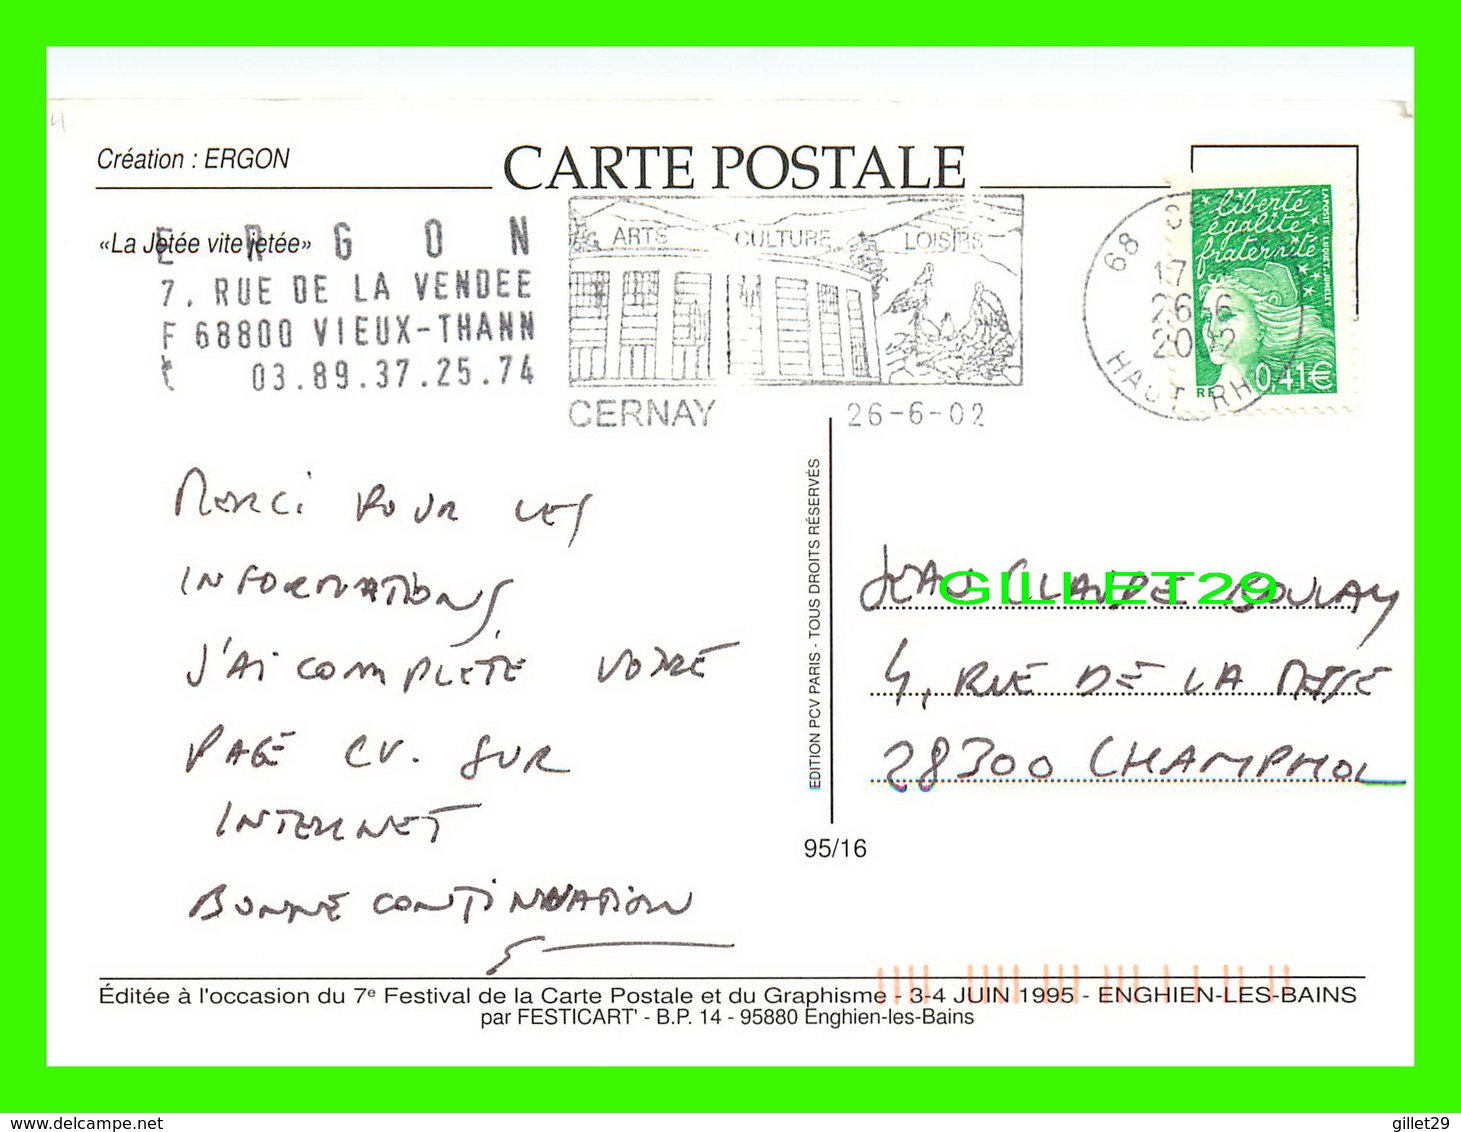 Création : ERGON
CARTE POSTALE
«La Jetée vite jetée»
E R G O N
7, RUE DE LA VENDEE
F 68800 VIEUX-THANN
03.89.37.25.74
ARTS CULTURE LOISIRS
CERNAY 26-6-02
68
17
26-6
2002
HAUT RH
liberté
égalité
fraternité
LA POSTE LUQUET, JUMELET
RF 0,41€
Merci pour les
informations,
J'ai complété votre
page CV. sur
internet
Bonne continuation
EDITION PCV PARIS - TOUS DROITS RÉSERVÉS
95/16
Jean Claude Boulay
GILLET29
4, rue de la
28300 CHAMPHOL
Éditée à l'occasion du 7e Festival de la Carte Postale et du Graphisme - 3-4 JUIN 1995 - ENGHIEN-LES-BAINS
par FESTICART' - B.P. 14 - 95880 Enghien-les-Bains
www.delcampe.net
gillet29